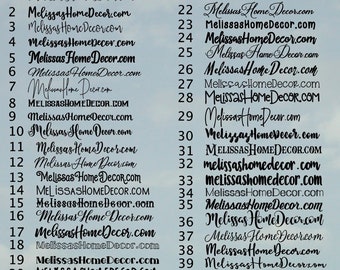 MelissasHomeDecor.com
3 MelissasHomeDecor.com
4 MelissasHomeDecor.com
5 MelissasHomeDecor.com
6 MelissasHomeDecor.com
7 MelissasHomeDecor.com
8 MelissasHomeDecor.com
9 MelissasHomeDecor.com
10 MelissasHomeDecor.com
11 MelissasHomeDecor.com
12 MelissasHomeDecor.com
13 MelissasHomeDecor.com
14 MelissasHomeDecor.com
15 MelissasHomeDecor.com
16 MelissasHomeDecor.com
17 MelissasHomeDecor.com
18 MelissasHomeDecor.com
19 MelissasHomeDecor.com
22 MelissasHomeDecor.com
23 MelissasHomeDecor.com
24 MelissasHomeDecor.com
25 MelissasHomeDecor.com
26 MelissasHomeDecor.com
27 MelissasHomeDecor.com
28 MelissasHomeDecor.com
29 MelissasHomeDecor.com
30 MelissasHomeDecor.com
31 MelissasHomeDecor.com
32 melissashomedecor.com
33 melissashomedecor.com
34 MelissasHomeDecor.com
35 MelissasHomeDecor.com
36 MelissasHomeDecor.com
37 MelissasHomeDecor.com
38 MelissasHomeDecor.com
39 MelissasHomeDecor.com